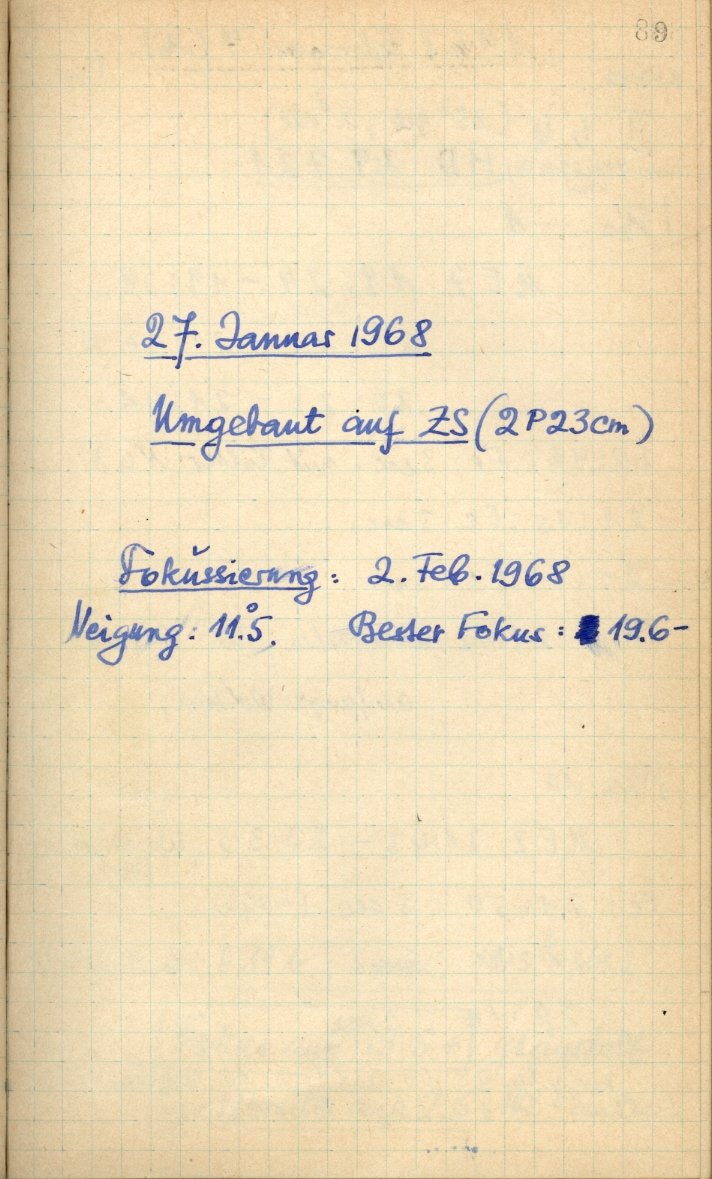 89
27. Januar 1968
Umgebaut auf ZS (2P23cm)
Fokussierung: 2. Feb. 1968
Neigung: 11°.5. Bester Fokus: 19.6-